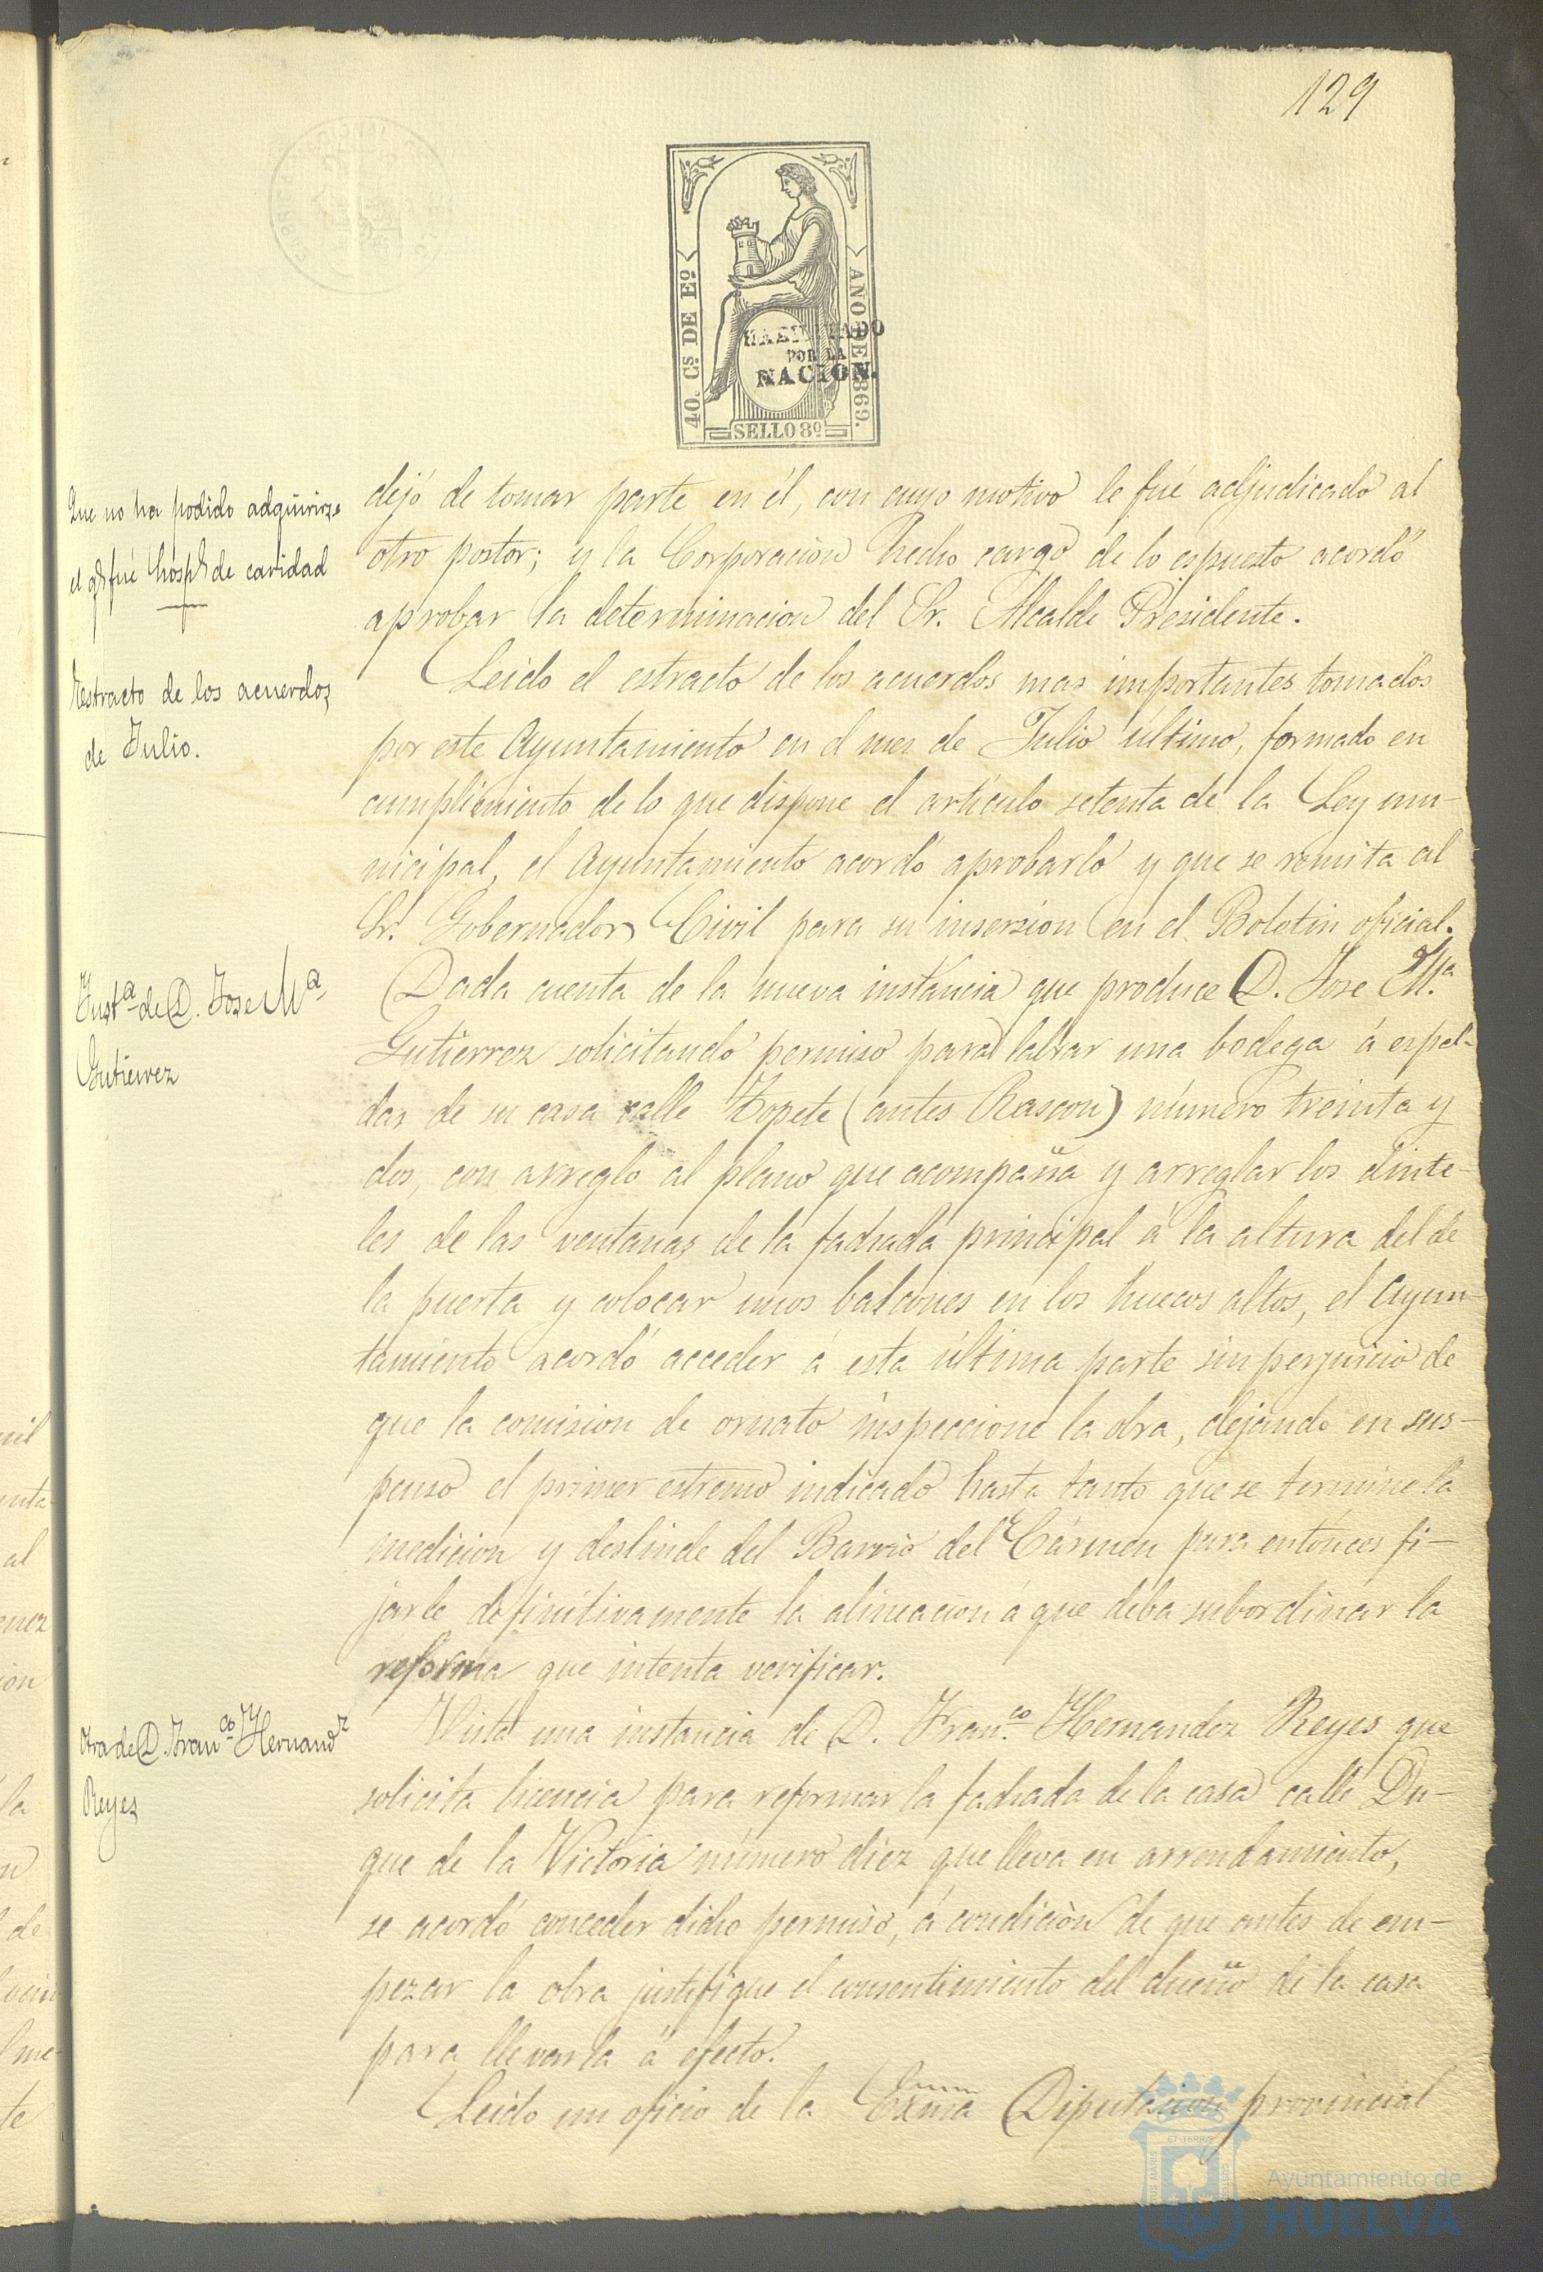 129
40. Cs. DE Eº
AÑO DE 1869.
HABILITADO
POR LA
NACION.
SELLO 8º
Que no ha podido adquirirse
el qe fué hospl de caridad
dejó de tomar parte en él, con cuyo motivo le fué adjudicado al
otro postor; y la Corporacion hecho cargo de lo espuesto acordó
aprobar la determinacion del Sr. Alcalde Presidente.
Estracto de los acuerdos
de Julio.
Leido el estracto de los acuerdos mas importantes tomados
por este Ayuntamiento en el mes de Julio último, formado en
cumplimiento de lo que dispone el artículo setenta de la Ley mu-
nicipal, el Ayuntamiento acordó aprobarlo y que se remita al
Sr. Gobernador Civil para su insersion en el Boletin oficial.
Insta de D. Jose Ma
Gutierrez
Dada cuenta de la nueva instancia que produce D. Jose Ma
Gutierrez solicitando permiso para labrar una bodega á espal-
das de su casa calle Topete (antes Rascon) número treinta y
dos, con arreglo al plano que acompaña y arreglar los dinte-
les de las ventanas de la fachada principal á la altura del de
la puerta y colocar unos balcones en los huecos altos, el Ayun-
tamiento acordó acceder á esta última parte sin perjuicio de
que la comision de ornato inspeccione la obra, dejando en sus-
penso el primer estremo indicado hasta tanto que se termine la
medicion y deslinde del Barrio del Cármen para entónces fi-
jarle definitivamente la alineacion á que deba subordinar la
reforma que intenta verificar.
Otra de D. Franco Hernandz
Reyes
Vista una instancia de D. Franco Hernandez Reyes que
solicita licencia para reformar la fachada de la casa calle Du-
que de la Victoria número diez que lleva en arrendamiento,
se acordó conceder dicho permiso, á condicion de que antes de em-
pezar la obra justifique el consentimiento del dueño de la casa
para llevarla á efecto.
Leido un oficio de la Exma Diputacion provincial
Ayuntamiento de
HUELVA